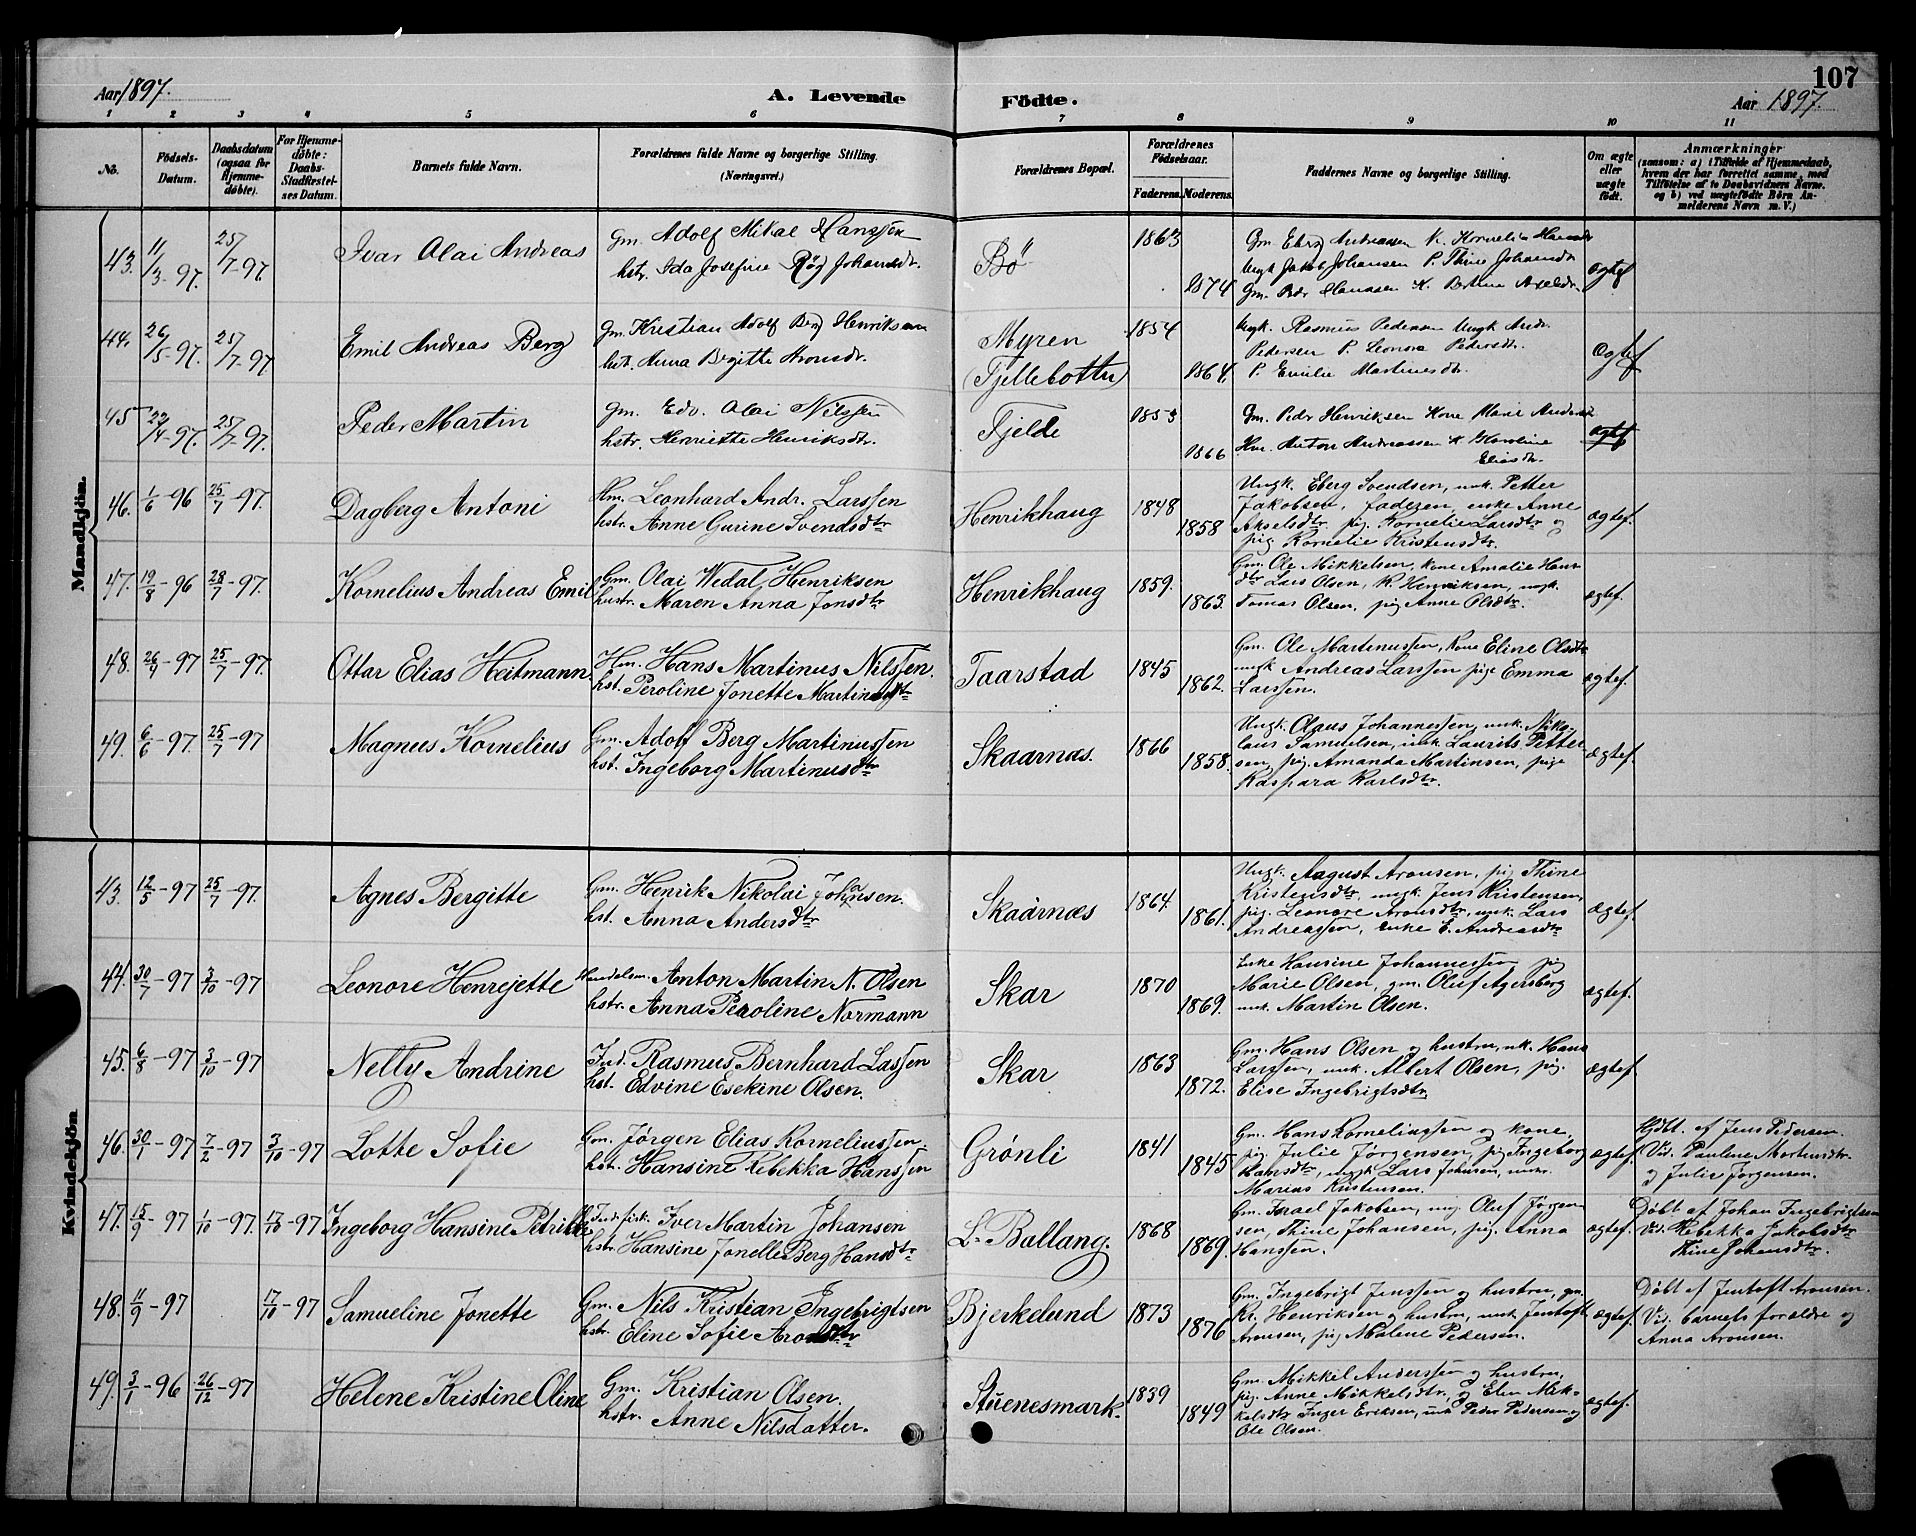 Aar 1897. A. Levende Födte. Aar 1897. 107
1 2 3 4 5 6 7 8 9 10 11
No. Födsels-Datum. Daabsdatum (ogsaa for Hjemmedöbte). For Hjemmedöbte: Daabs-Stadfæstelses Datum. Barnets fulde Navn. Forældrenes fulde Navne og borgerlige Stilling. (Næringsvei.) Forældrenes Bopæl. Forældrenes Födselsaar. Faderens. Moderens. Faddernes Navne og borgerlige Stilling. Om ægte eller uægte födt. Anmærkninger (saasom: a) i Tilfælde af Hjemmedaab, hvem der har forrettet samme, med Tilföielse af to Daabsvidners Navne. og b) ved uægtefödte Börn Anmelderens Navn m. V.)
Mandkjön.
43. 11/3-97. 25/7-97 Ivar Olai Andreas Gm. Adolf Mikal Hanssen Bö 1863 Gm Eberg Andreassen K. Kornelia Hansdr
hstr. Ida Josefine Røg Johansdr. Ungk Jakob Johansen P. Thine Johansdr ægtef
1874 Gm. Pedr Hanssen K. Bertine Axelsdr.
44. 26/5-97. 25/7-97 Emil Andreas Berg Gm. Kristian Adolf Berg Henriksen Myren 1854 Ungk. Rasmus Pedersen Ungk Andr.
hst. Anna Bergitte Aronsdr. (Fjellebotten) Pedersen P. Leonora Pedersdr. Ægtef
1864. P. Emilie Martinesdr.
45 22/4-97. 25/7-97. Peder Martin Gm. Edv. Olai Nilssen Fjelde 1853 Gm. Pedr Henriksen Kone Marie Andersdr
hstr. Henriette Henriksdtr. 1866 Hm. Anton Andreassen K Karoline ægtef
Eliasdr.
46. 1/6-96 25/7-97. Dagberg Antoni Hm. Leonhard Andr. Larssen Henrikhaug 1848 Ungk. Eberg Svendsen, unk. Petter
hstr. Anne Gurine Svendsdtr 1858 Jakobsen, faderen, enke Anne
Akselsdtr. pig. Kornelie Larsdtr og ægtef.
pig Kornelie Kristensdtr.
47. 19/8-96 28/7-97. Kornelius Andreas Emil Gm. Olai Wedal Henriksen Henrikhaug 1859. Gm. Ole Mikkelsen, kone Amalie Hans
hustr. Maren Anna Jonsdtr 1863. dtr Lars Olsen, K. Henriksen, ungk. ægtef.
Tomas Olsen, pig Anne Olsdtr.
48. 26/4-97 25/7-97. Ottar Elias Heitmann. Hm. Hans Martinus Nilssen. Taarstad 1845 Gm. Ole Martinussen, Kone Eline Olsdtr
hst. Peroline Jonette Martinusdtr 1862. ungk Andreas Larssen pige Emma ægtef.
Larssen.
49. 6/6-97. 25/7-97 Magnus Kornelius Gm. Adolf Berg Martinussen Skaarnæs. 1866 Ungk. Olaus Johannessen, unk. Niko
hst. Ingeborg Martinusdtr 1858. laus Samuelsen, unk Laurits Petter
sen, pig Amanda Martinsen, pige ægtef.
Kaspara Karlsdtr.
Kvindekjön
43. 12/5-97 25/7-97. Agnes Bergitte Gm. Henrik Nikolai Johansen. Skaarnæs 1864. Ungk. August Aronsen, pig Thine
hst. Anna Andersdtr 1861. Kristensdtr, ungk. Jens Kristensen,
pig. Leonore Aronsdtr, unk. Lars ægtef.
Andreassen, enke E. Andreasdtr
44. 30/7-97 3/10-97 Leonore Henrejette Handelsm. Anton Martin N. Olsen Skar 1870 Enke Hansine Johannessen pig
hstr. Anna Peroline Normann 1869. Marie Olsen, gm. Oluf Agersborg ægtef.
unk. Martin Olsen.
45. 6/8-97 3/10-97 Nelly Andrine Ind. Rasmus Bernhard Lassen Skar 1863 Gm. Hans Olsen og hustru, uk. Hans
hst. Edvine Esekine Olsen. 1872. Larssen, unk. Albert Olsen, pig. ægtef.
Elise Ingebrigtsdtr.
46. 30/1-97 7/2-97 3/10-97 Lotte Sofie Gm. Jørgen Elias Korneliussen. Grønli 1841 Gm. Hans Korneliussen og kone, Hjdbt. af Jens Pedersen.
hst. Hansine Rebekka Hanssen 1845 pig. Julie Jørgensen, pig Ingeborg ægtef. Vid. Pauline Mortensdtr
Hansdtr, ungk Lars Johnsen, unk. og Julie Jørgensen.
Marius Kristensen.
47. 15/9-97 1/10-97. 17/10-97 Ingeborg Hansine Petrikke Ind. fisk. Iver Martin Johansen L. Ballang. 1868 Gm. Israel Jakobsen, ung Oluf Jørgen Døbt af Johan Ingebrigtsen
hstr. Hansine Jonelle Berg Hansdtr 1869. sen, Thine Johansen, pig. Anna ægtef. Vid. Rebekka Jakobsdtr
Hanssen. Thine Johansdtr.
48. 11/9-97 17/10-97 Samueline Jonette Gm. Nils Kristian Ingebrigtsen Bjerkelund 1873 Gm. Ingebrigt Jenssen og hustru, gm. Døbt af Jentoft Aronsen.
hstr. Eline Sofie Aronsdtr 1876 Kr. Henriksen og hustru, unk Jentoft ægtef. Vid. barnets forældre og
Aronsen, pig Malene Pedersen. Anna Aronsen.
49. 3/1-96 26/12-97 Helene Kristine Oline Gm. Kristian Olsen. Stuenesmark. 1839 Gm. Mikkel Anderssen og hustru,
hstr. Anne Nilsdatter. 1849 pig. Anne Mikkelsdtr, og Elen Mik- ægtef.
kelsdtr Inger Eriksen, unk Peder Pedersen og
Ole Olsen.